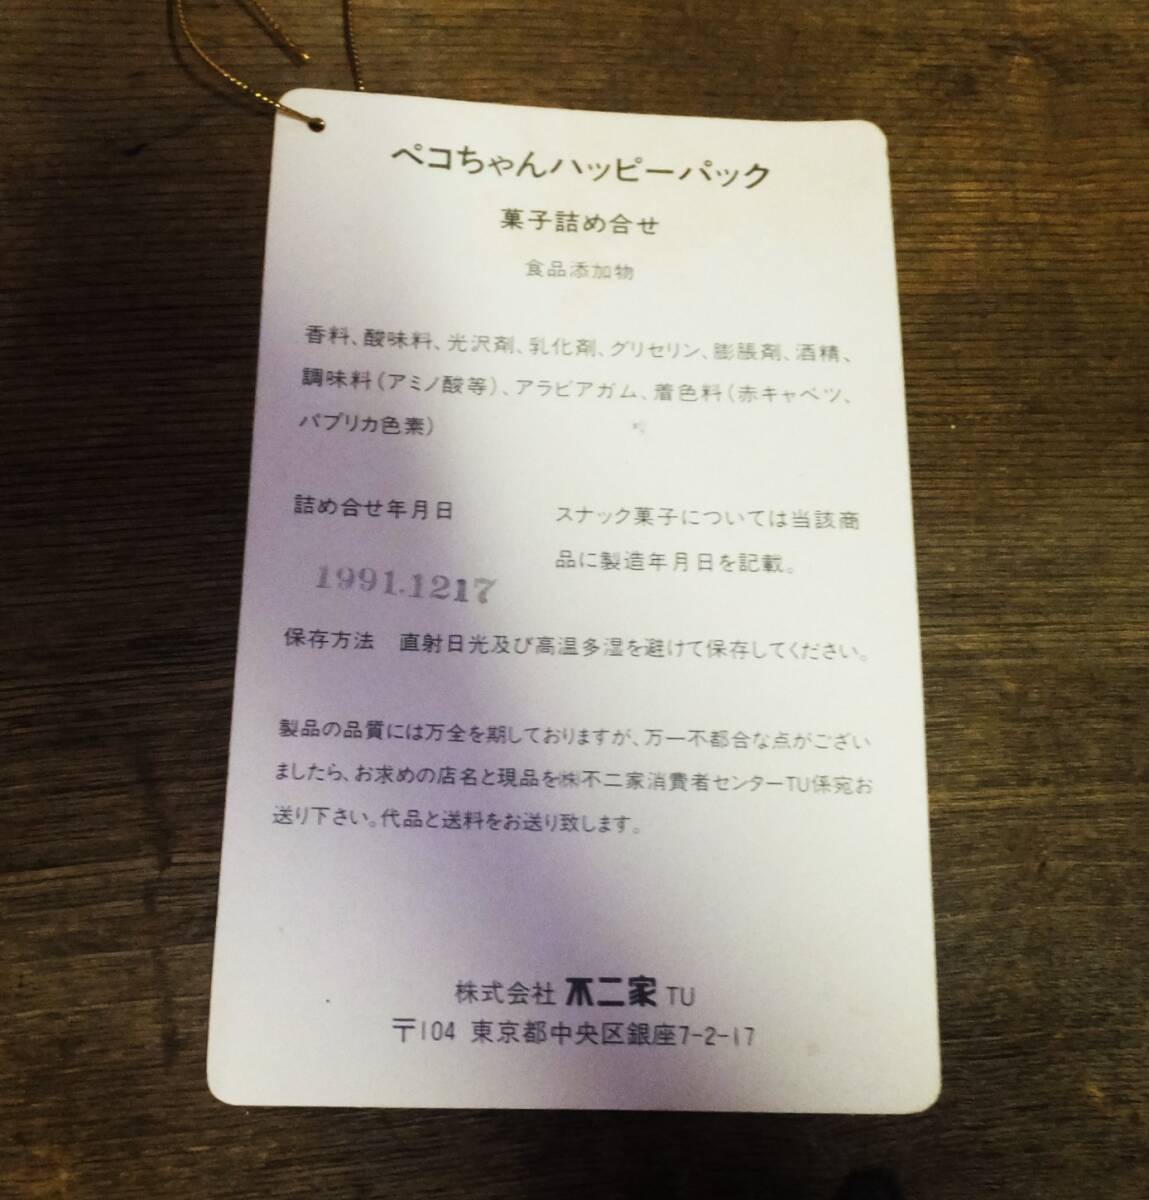 ペコちゃんハッピーパック
菓子詰め合せ
食品添加物
香料、酸味料、光沢剤、乳化剤、グリセリン、膨脹剤、酒精、
調味料(アミノ酸等)、アラビアガム、着色料(赤キャベツ、
パプリカ色素)
詰め合せ年月日
1991.1217
スナック菓子については当該商
品に製造年月日を記載。
保存方法 直射日光及び高温多湿を避けて保存してください。
製品の品質には万全を期しておりますが、万一不都合な点がござい
ましたら、お求めの店名と現品を㈱不二家消費者センターTU係宛お
送り下さい。代品と送料をお送り致します。
株式会社 不二家 TU
〒104 東京都中央区銀座7-2-17